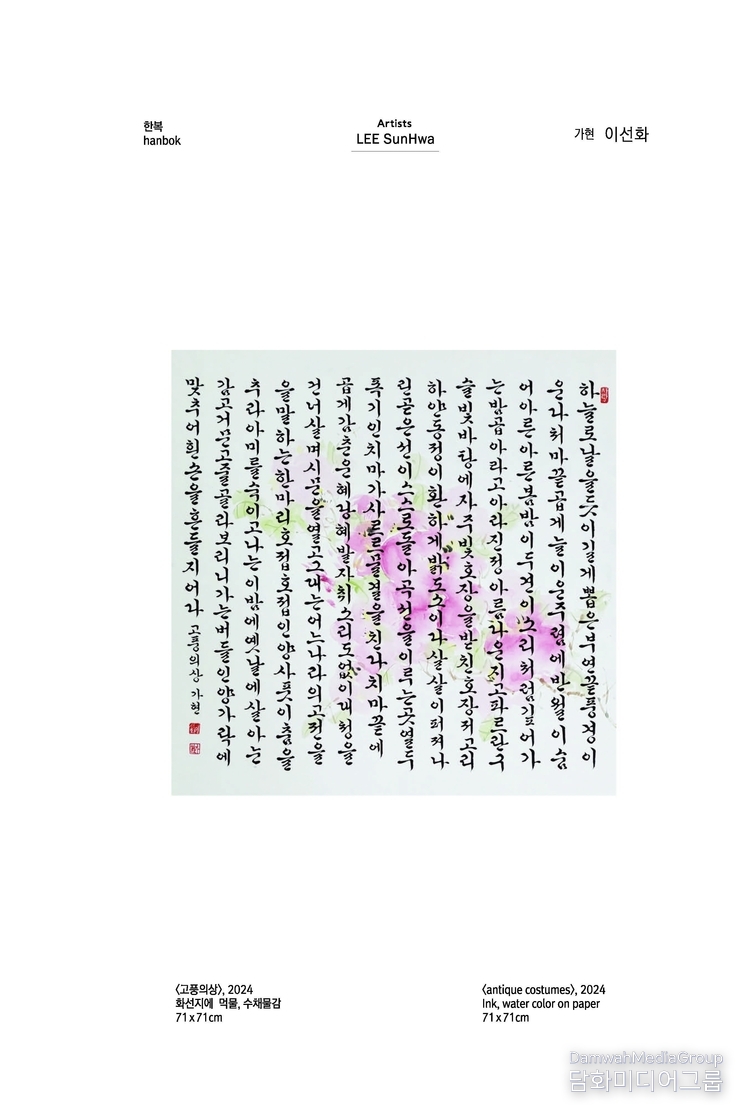 한복
hanbok
Artists
LEE SunHwa
가현 이선화
하늘로날을듯이길게뽑은부연끝풍경이
운다처마끝곱게늘이운주렴에반월이숨
어아른아른봄밤이두견이소리처럼깊어가
는밤곱아라고아라진정아름다운지고파르란구
슬빛바탕에자주빛호장을받친호장저고리
하얀동정이환하게밝도소이다살살이퍼져나
린곧은선이스스로돌아곡선을이루는곳열두
폭기인치마가사르르물결을친다치마끝에
곱게감춘운혜당혜발자취소리도없이대청을
건너살며시문을열고그대는어느나라의고전을
을말하는한마리호접호접인양사풋이춤을
추라아미를숙이고나는이밤에옛날에살아는
감고거문고줄골라보리니가는버들인양가락에
맞추어흰손을흔들지어다 고풍의상 가현
〈고풍의상〉, 2024
화선지에 먹물, 수채물감
71 x 71cm
〈antique costumes〉, 2024
Ink, water color on paper
71 x 71cm
DamwahMediaGroup
담화미디어그룹